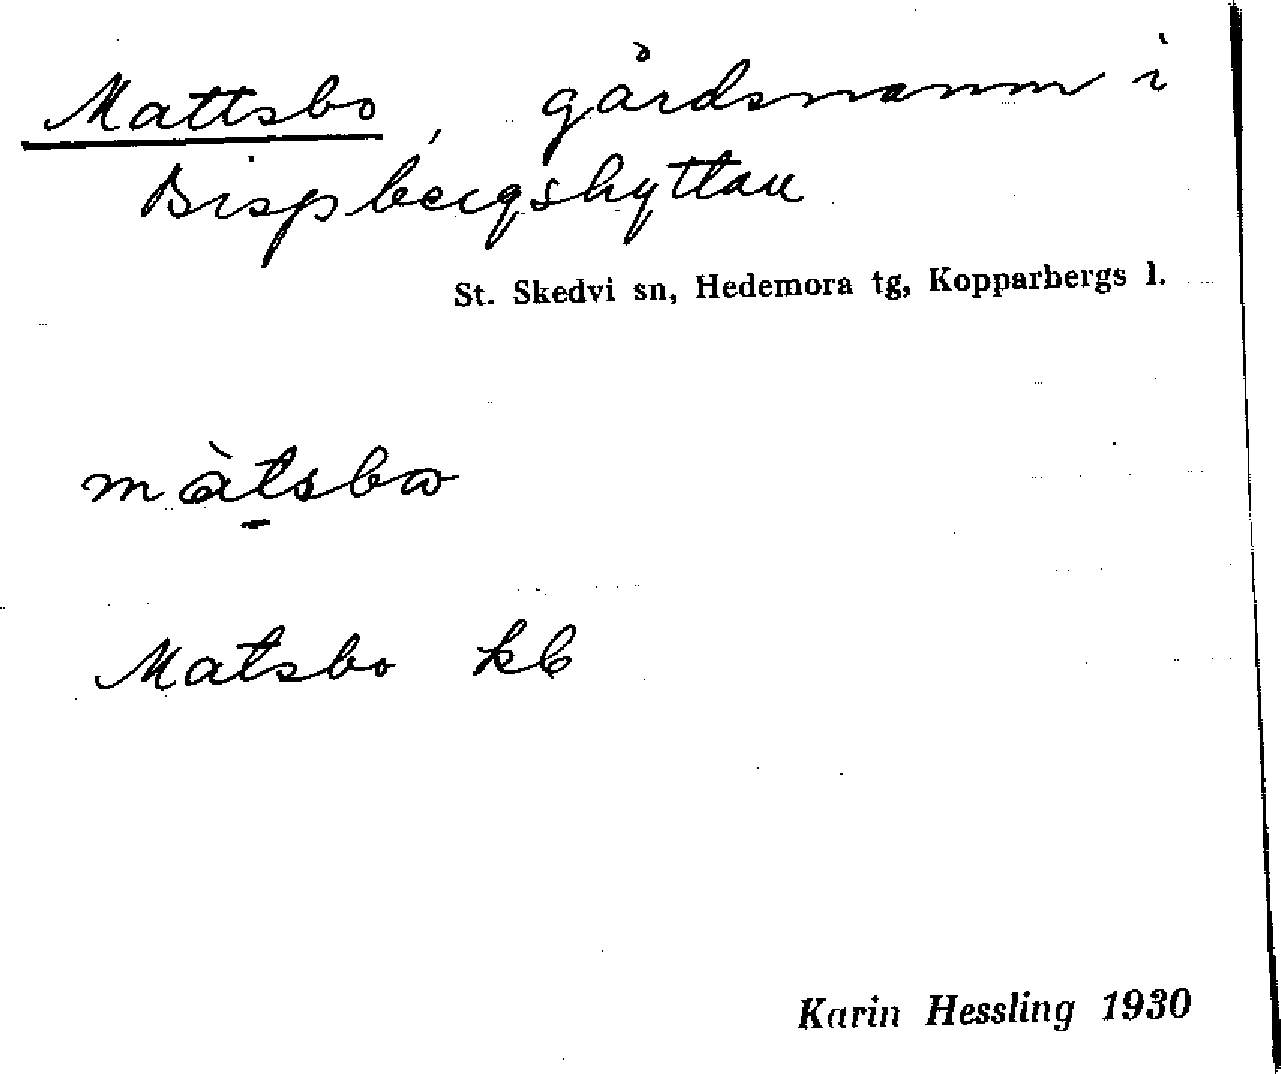 Mattsbo, gårdsnamn i
Bispbergshyttan
St. Skedvi sn, Hedemora tg, Kopparbergs l.
màt̠sbω
Matsbo kb
Karin Hessling 1930